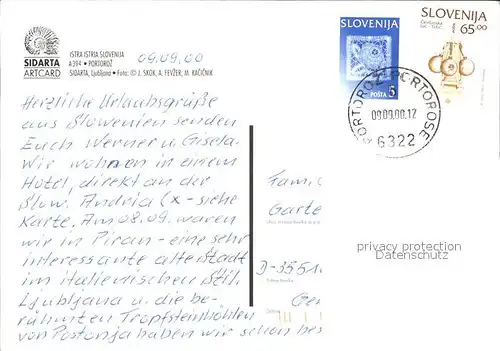 SIDARTA
ARTCARD
ISTRA ISTRIA SLOVENIJA
A394 • PORTOROŽ
SIDARTA, Ljubljana • Foto: © J. SKOK, A. FEVŽER, M. KAČIČNIK
09.09.00
SLOVENIJA
POŠTA 5
SLOVENIJA
65.00
PORTOROŽ-PORTOROSE
09.09.00.12
6322
Herzliche Urlaubsgrüße
aus Slowenien senden
Euch Werner u. Gisela.
Wir wohnen in einem
Hotel, direkt an der
Slow. Andria (x - siehe
Karte. Am 08.09. waren
wir in Piran - eine sehr
interessante alte Stadt
im italienischen Stil.
Ljubljana u. die be-
rühmten Tropfsteinhöhlen
von Postonja haben wir schon bes
Fam.
Garte
D-3551
Ger
privacy protection
Datenschutz